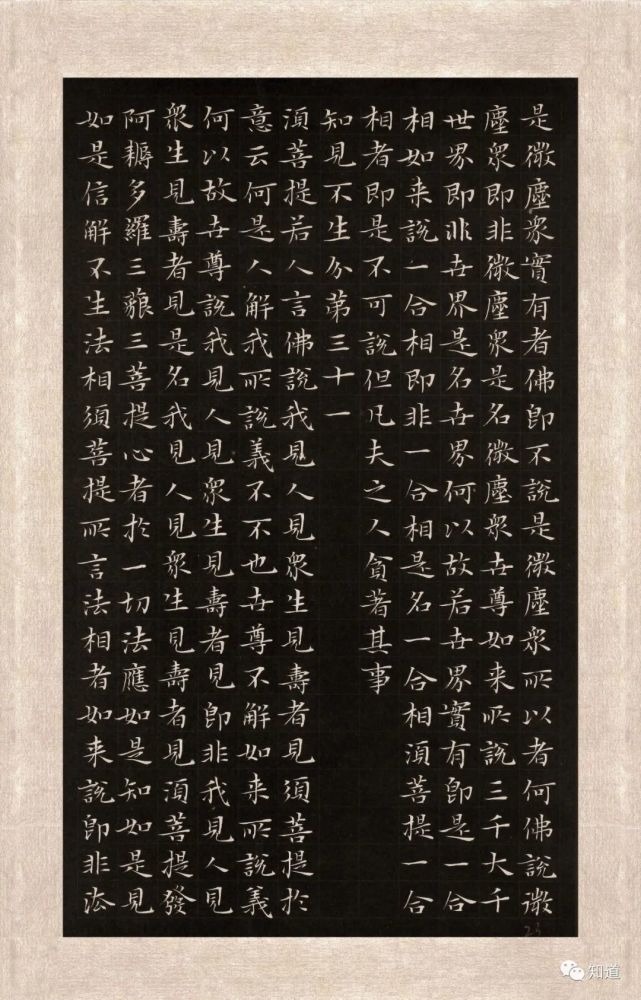 是微塵衆實有者佛即不說是微塵衆所以者何佛說微
塵衆即非微塵衆是名微塵衆世尊如来所說三千大千
世界即非世界是名世界何以故若世界實有即是一合
相如来說一合相即非一合相是名一合相湏菩提一合
相者即是不可說但凡夫之人貪著其事
知見不生分第三十一
湏菩提若人言佛說我見人見衆生見壽者見須菩提於
意云何是人解我所說義不不也世尊不解如来所說義
何以故世尊說我見人見衆生見壽者見即非我見人見
衆生見壽者見是名我見人見衆生見壽者見湏菩提發
阿耨多羅三藐三菩提心者於一切法應如是知如是見
如是信解不生法相須菩提所言法相者如来說即非法
23
知道